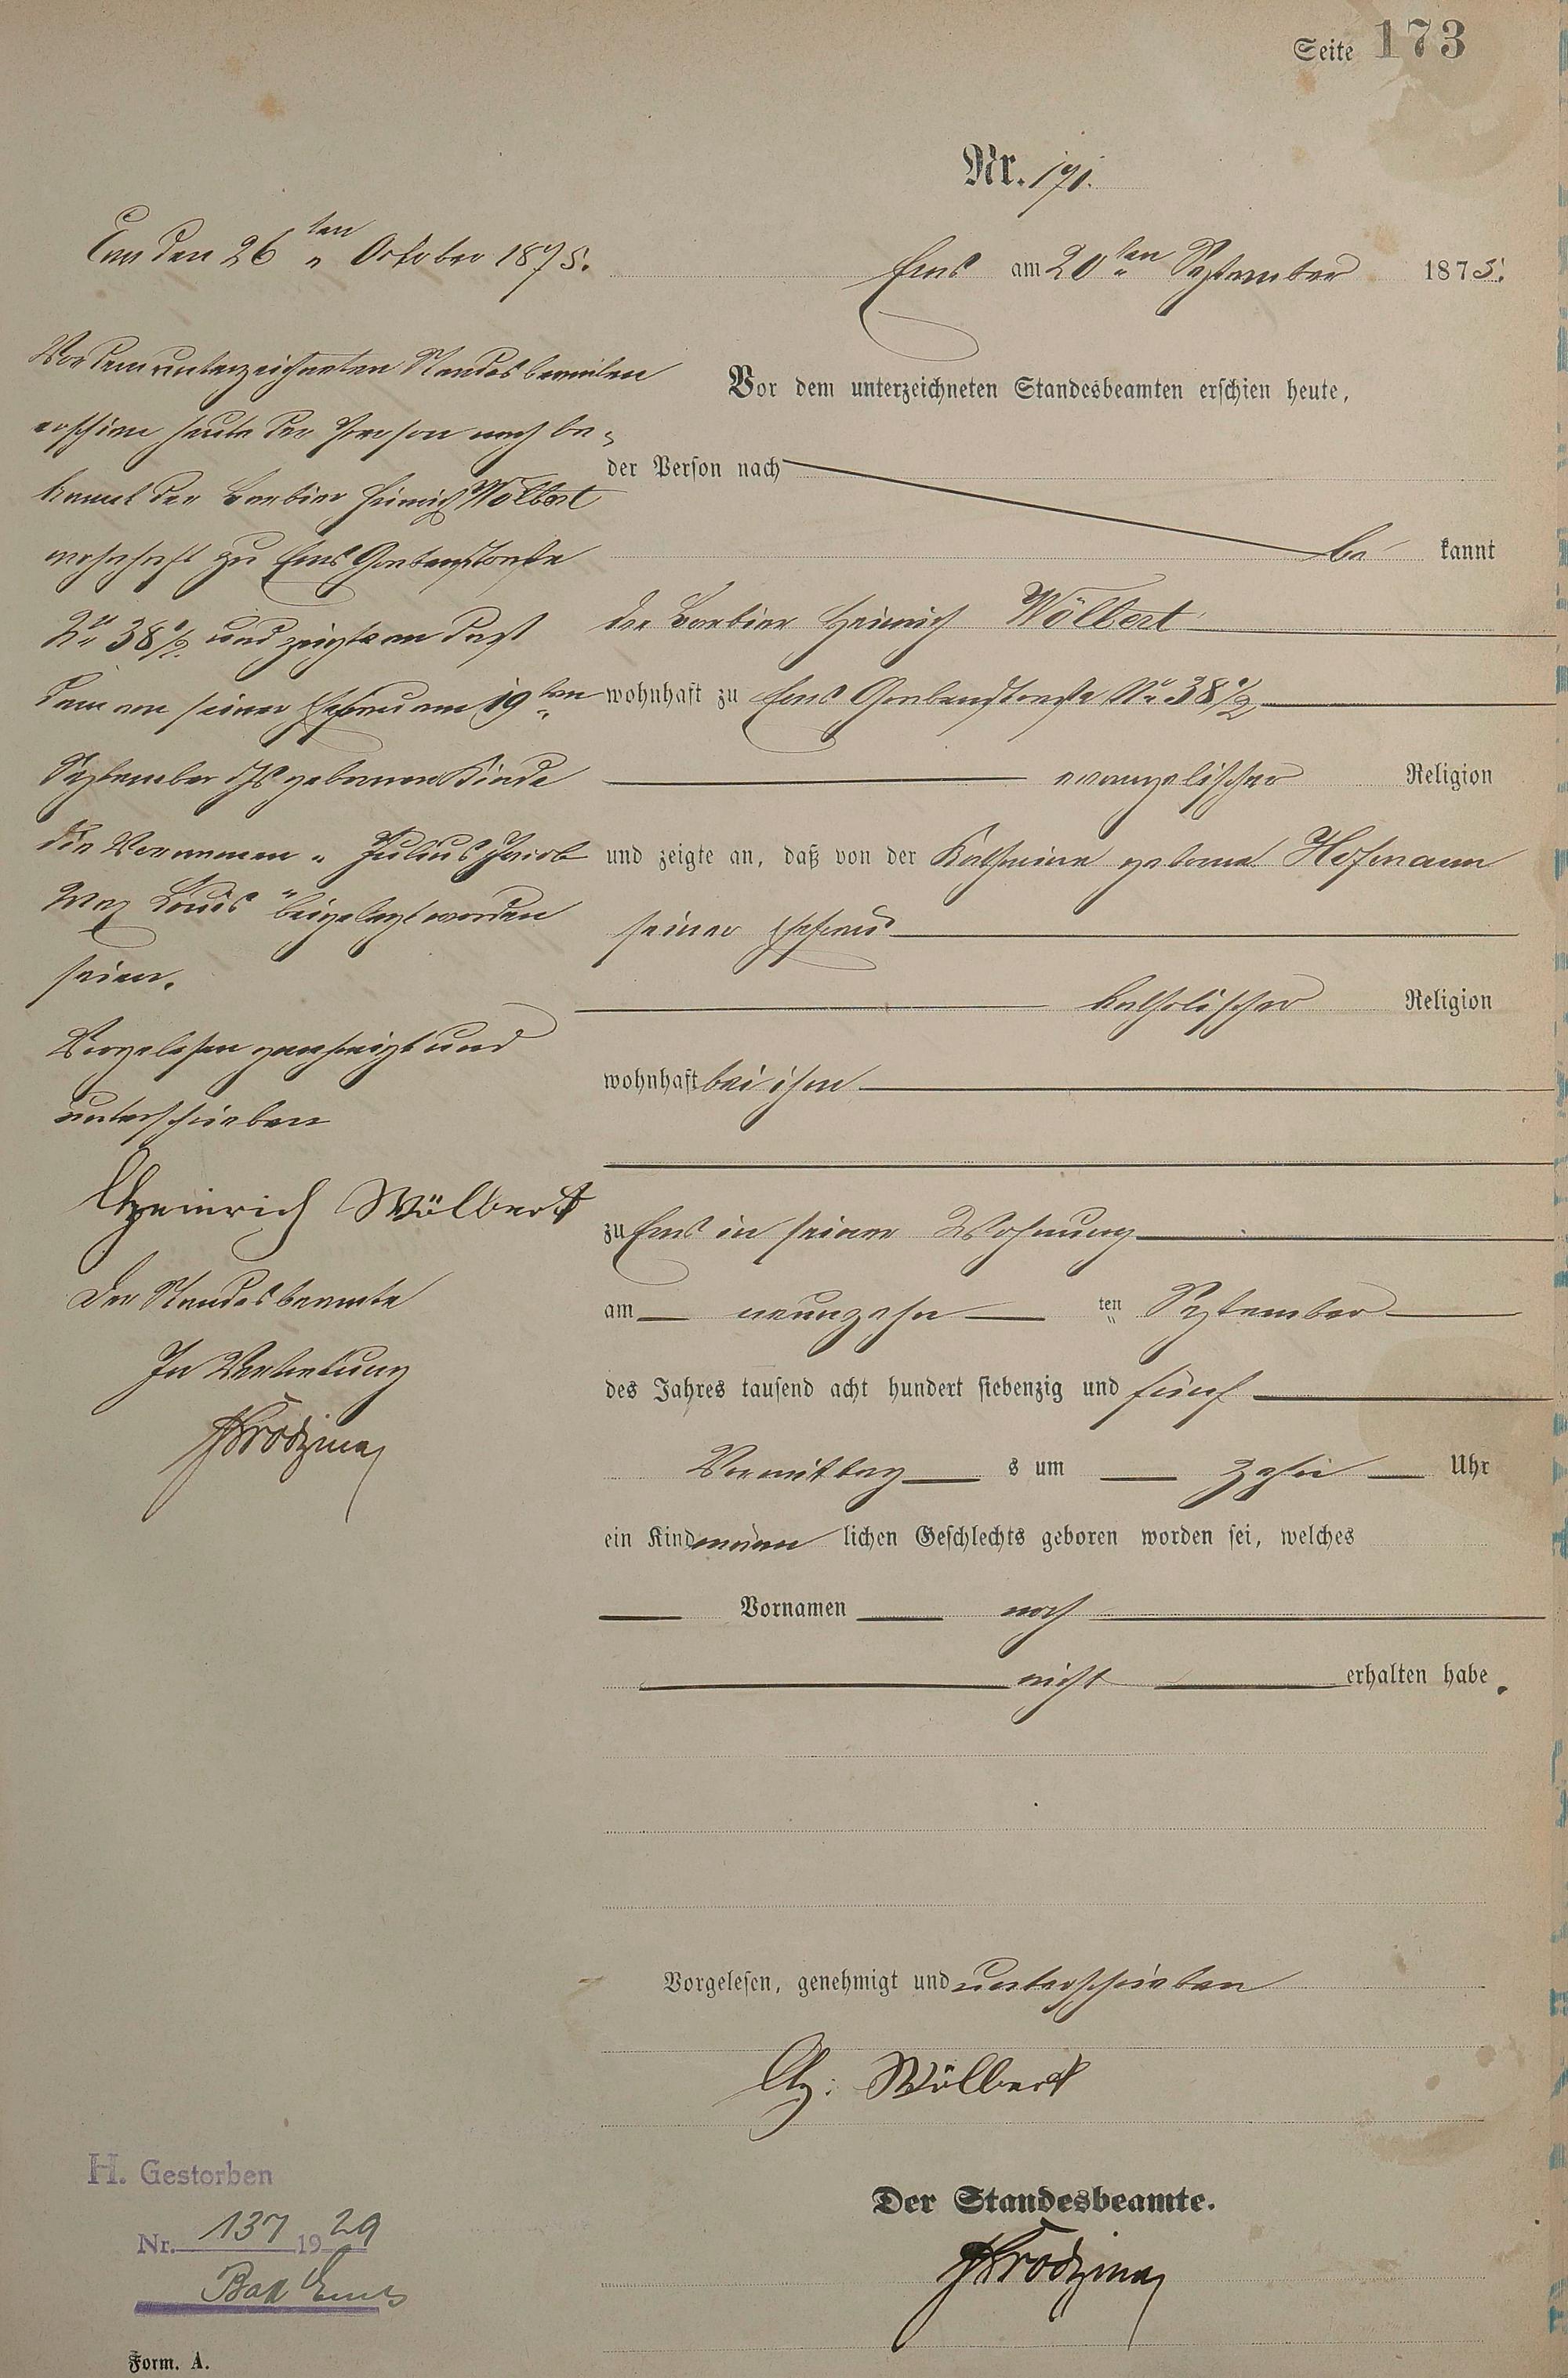 Seite 173
Nr. 171.
Ems den 26ten October 1875.
Vor dem unterzeichneten Standesbeamten
erschien heute der Person nach be-
kannt der Barbier Heinrich Wölbert
wohnhaft zu Ems Grabenstraße
No 38 1/2 und zeigte an daß
dem von seiner Ehefrau am 19ten
September d Js geborenen Kinde
die Vornamen „Julius Jacob
Max Louis“ beigelegt worden
seien.
Vorgelesen genehmigt und
unterschrieben
Heinrich Wölbert
Der Standesbeamte
In Vertretung
Ems am 20ten September 1875.
Vor dem unterzeichneten Standesbeamten erschien heute,
der Person nach
be kannt
der Barbier Heinrich Wölbert
wohnhaft zu Ems Grabenstraße No 38 1/2
evangelischer Religion
und zeigte an, daß von der Katharina geborne Hofmann
seiner Ehefrau
katholischer Religion
wohnhaft bei ihm
zu Ems in seiner Wohnung
am neunzehn ten September
des Jahres tausend acht hundert siebenzig und fünf
Vormittag s um zehn Uhr
ein Kind männ lichen Geschlechts geboren worden sei, welches
Vornamen noch
nicht erhalten habe.
Vorgelesen, genehmigt und unterschrieben
H: Wölbert
Der Standesbeamte.
H. Gestorben
Nr. 137 1929
Bad Ems
Form. A.